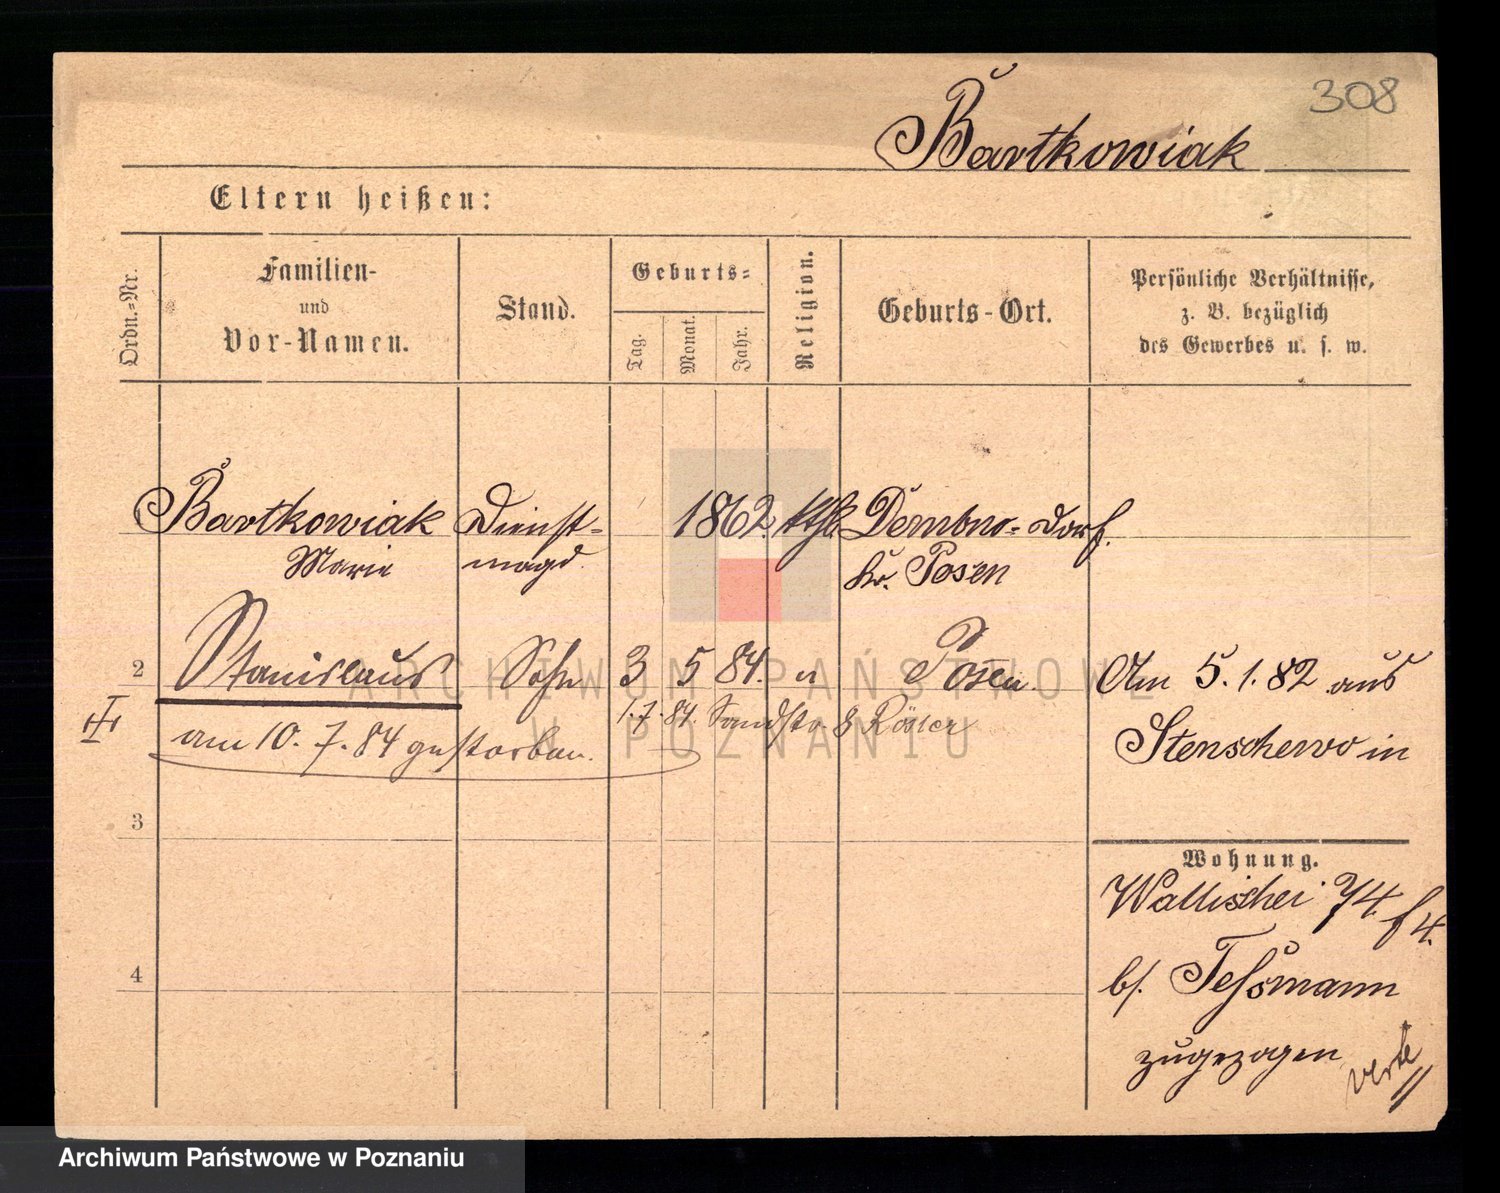 308
Bartkowiak
Eltern heißen:
Ordn.-Nr.
Familien-
und
Vor-Namen.
Stand.
Geburts-
Tag.
Monat.
Jahr.
Religion.
Geburts-Ort.
Persönliche Verhältnisse,
z. B. bezüglich
des Gewerbes u. s. w.
Bartkowiak Dienst- 1862. kth. Dembno-Dorf.
Marie magd. Kr. Posen
2 Stanislaus Sohn 3 5 84. " Posen. Am 5.1.82 aus
1.7.84. Sandstr 8 Rösler
am 10.7.84 gestorben.
Stenschewo in
3
Wohnung.
Wallischei 74. f 4.
4
b/. Teßmann
zugezogen
verte
ARCHIWUM PAŃSTWOWE
W POZNANIU
Archiwum Państwowe w Poznaniu